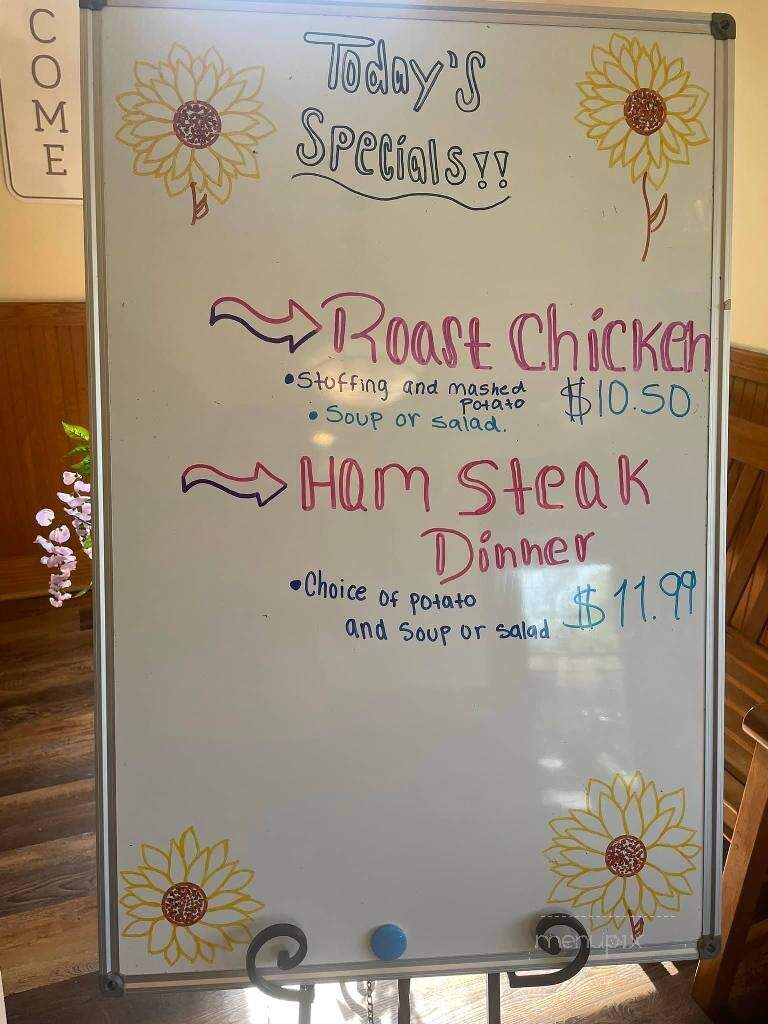 COME
Today's
Specials!!
Roast Chicken
•Stuffing and mashed
potato
$10.50
•Soup or salad.
Ham Steak
Dinner
•Choice of potato
and soup or salad
$11.99
menupix